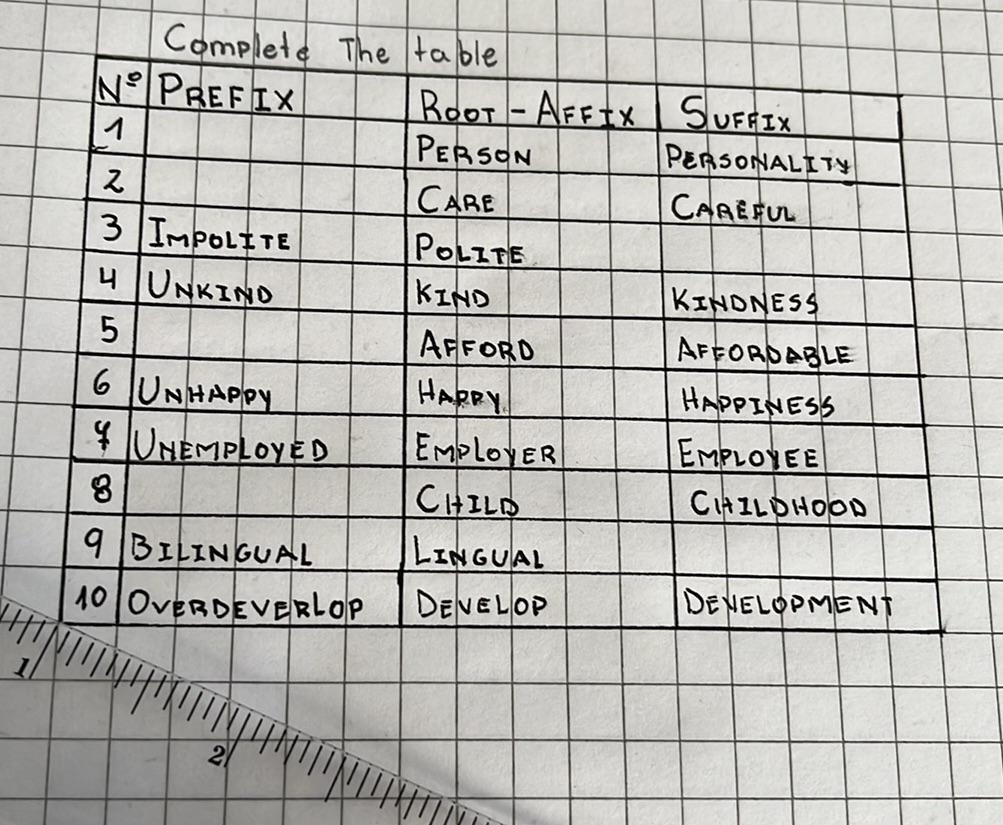 Complete The table
Nº PREFIX ROOT-AFFIX SUFFIX
1 PERSON PERSONALITY
2 CARE CAREFUL
3 IMPOLITE POLITE
4 UNKIND KIND KINDNESS
5 AFFORD AFFORDABLE
6 UNHAPPY HAPPY HAPPINESS
7 UNEMPLOYED EMPLOYER EMPLOYEE
8 CHILD CHILDHOOD
9 BILINGUAL LINGUAL
10 OVERDEVERLOP DEVELOP DEVELOPMENT
1
2